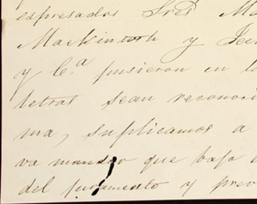 espresados Sres Ma
Mackintosh y
y Ca. pusieron en l
letras sean reconoci
ma, suplicamos a
va mandar que bajo
del juramento y prev